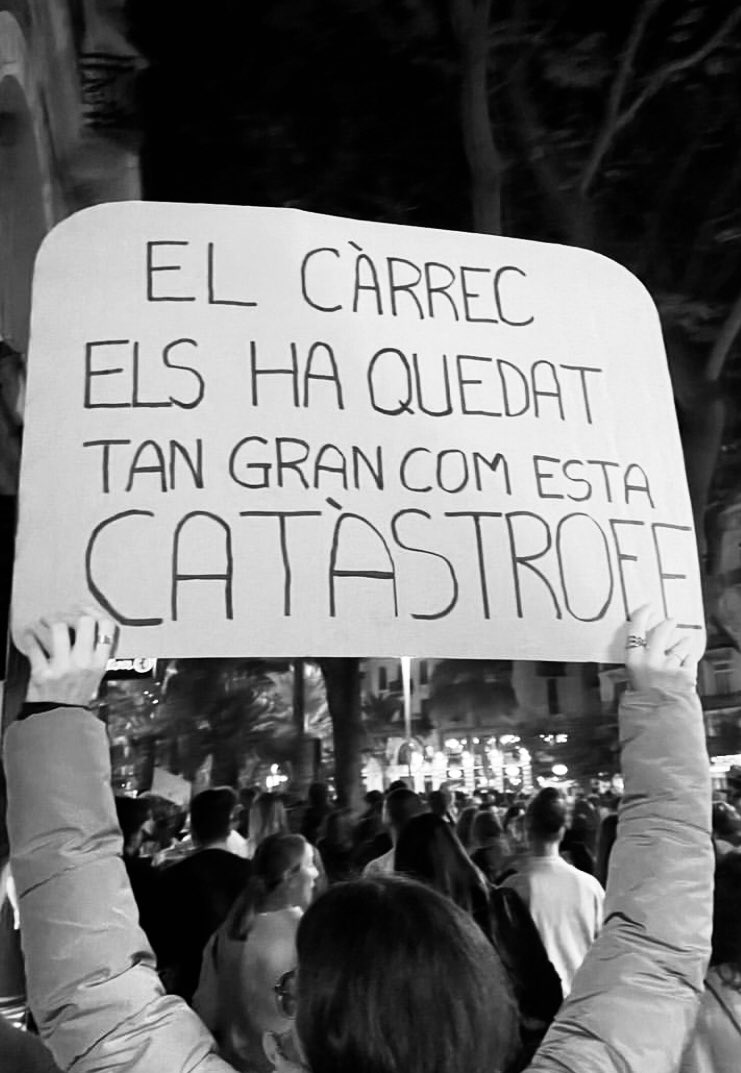 EL CÀRREC
ELS HA QUEDAT
TAN GRAN COM ESTA
CATÀSTROFE